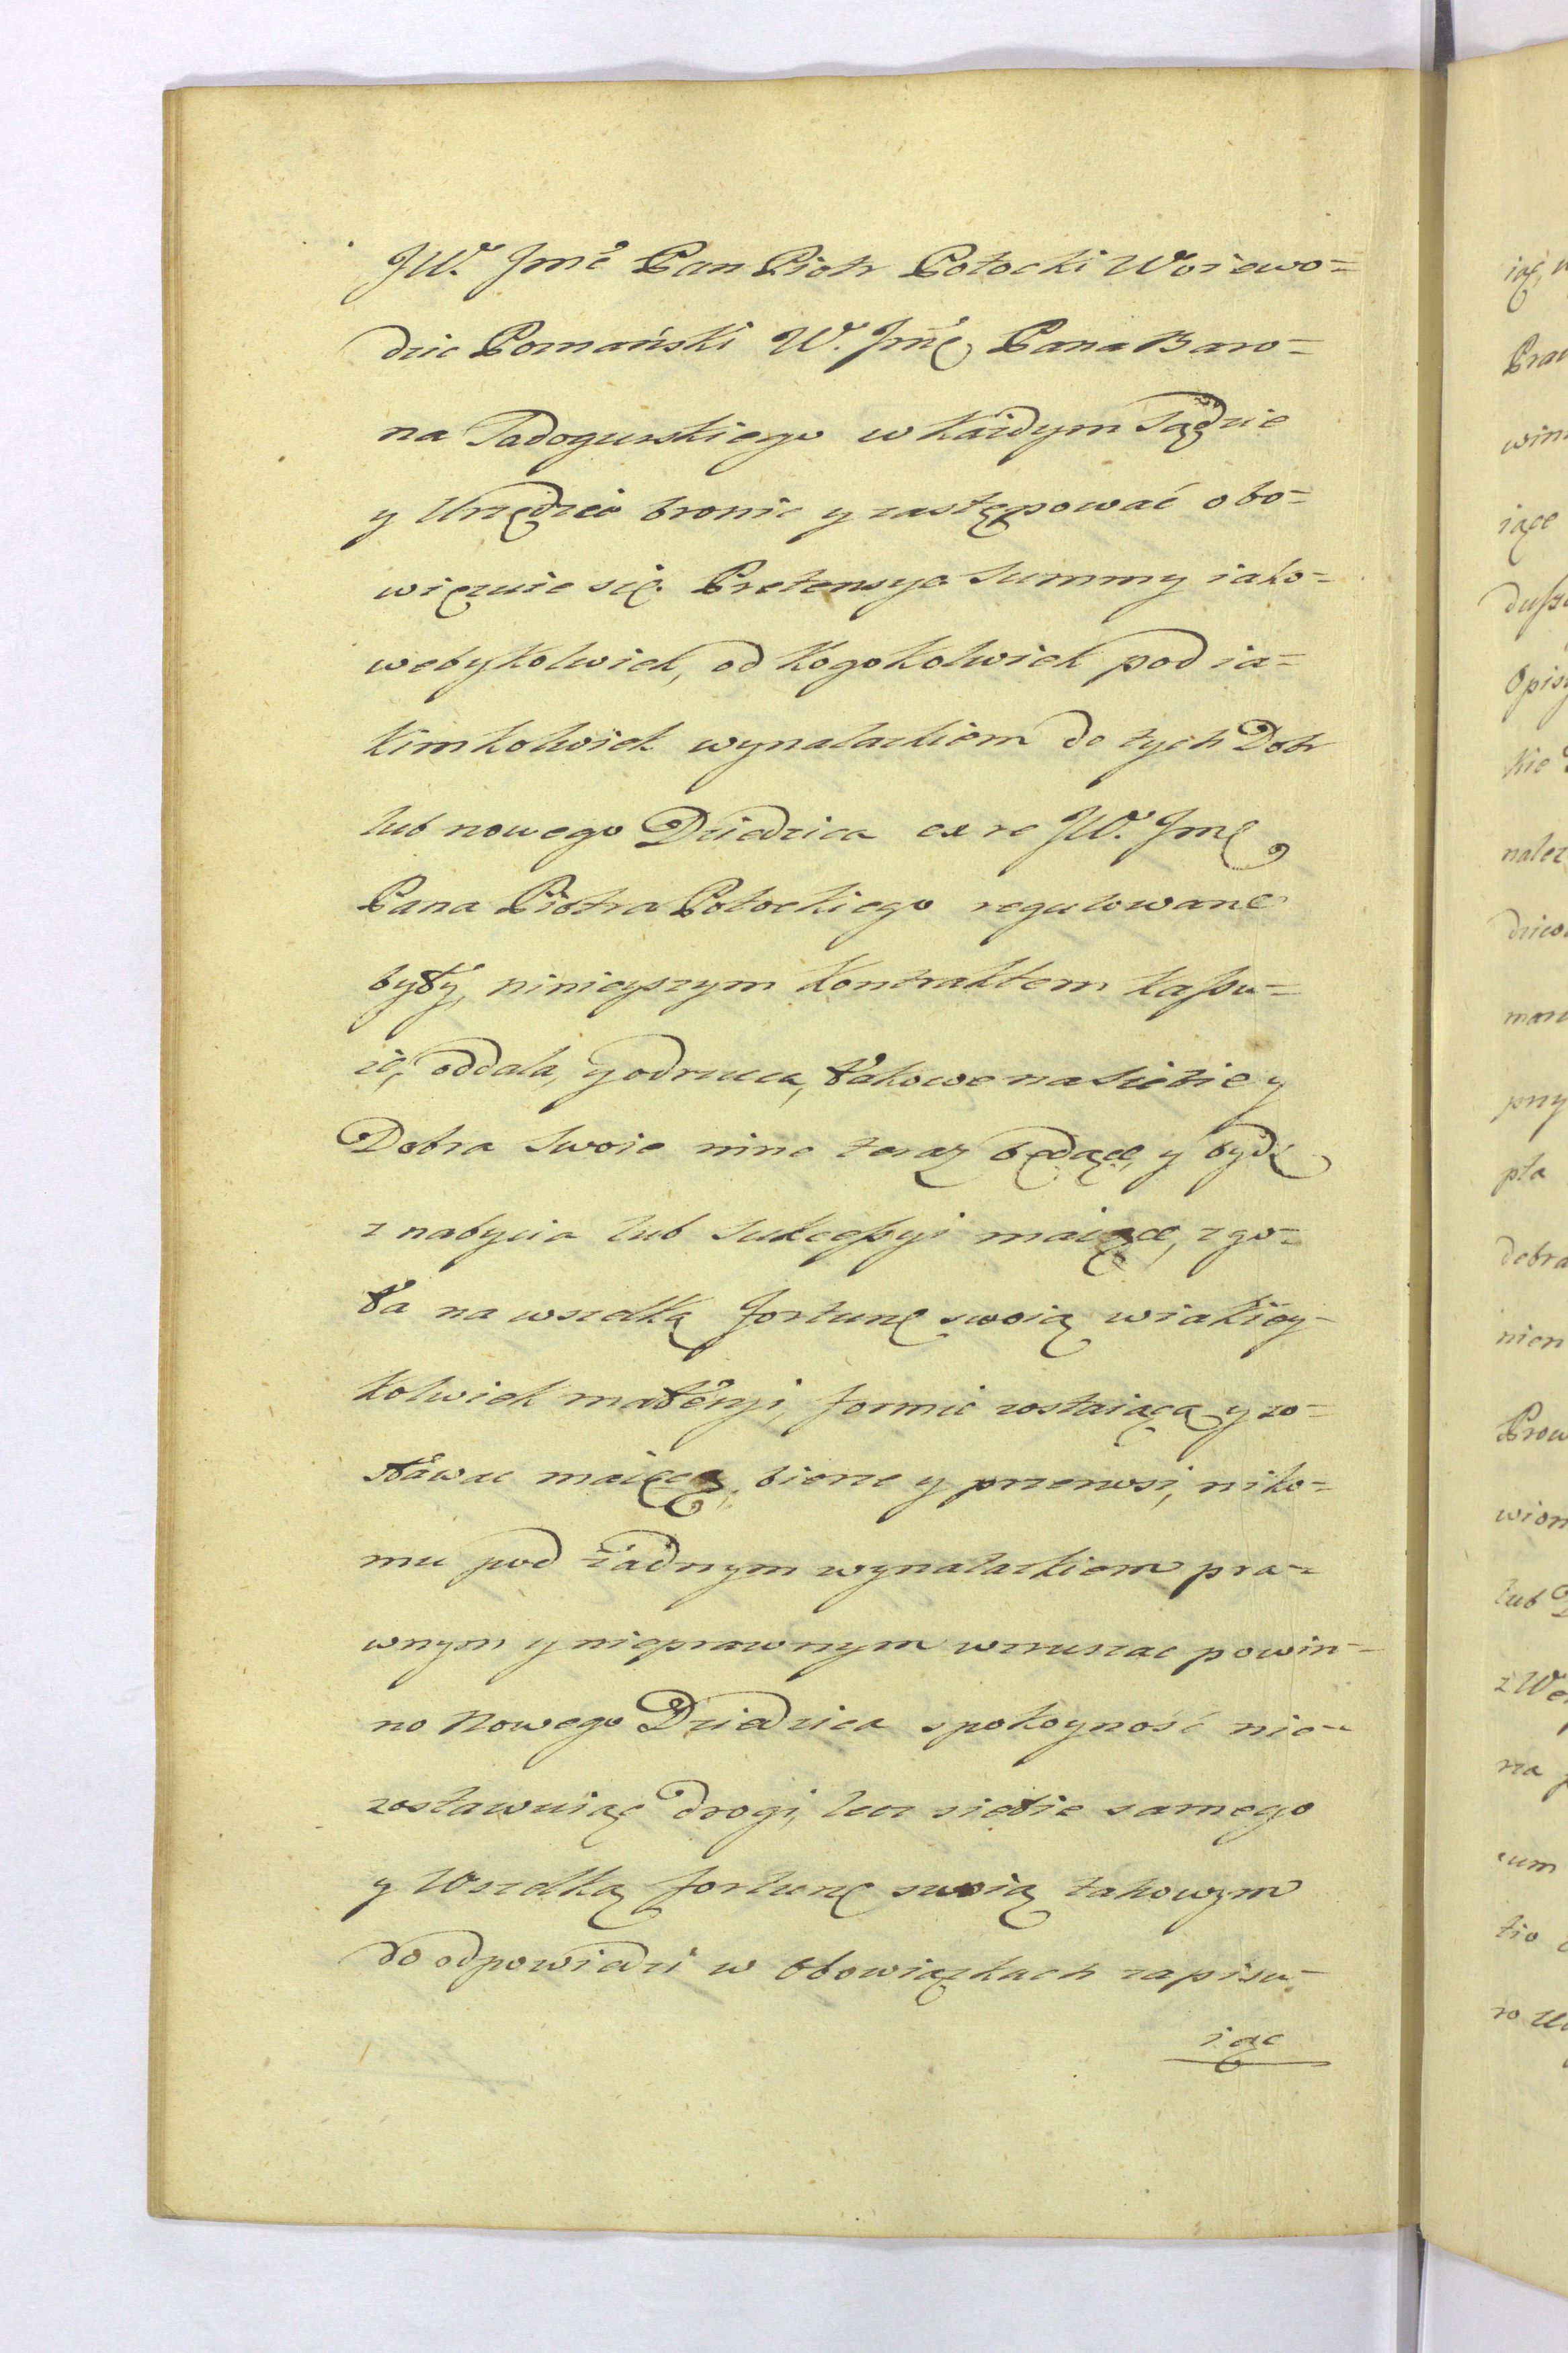 JW. Jmć Pan Piotr Potocki Woiewo=
dzic Poznański W. Jmę Pana Baro=
na Sadogurskiego w każdym Sądzie
y Urzędzie bronic y zastępować obo=
więzuie się. Pretensye Summy iako=
webykolwiek, od kogokolwiek pod ia=
kimkolwiek wynalazkiem do tych Dobr
lub nowego Dziedzica ex re JW. Jmę
Pana Piotra Potockiego regulowane
były, ninieyszym kontraktem kassu=
ie, oddala, y odrzuca, takowe na siebie y
Dobra swoie nine teraz będące, y bydź
z nabycia lub sukcessyi maiące, zgo=
ła na wszelką fortunę swoią w iakiey=
kolwiek materyi, formie zostaiącą y zo=
stawac maiącą, bierze y przenosi, niko=
mu pod żadnym wynalazkiem pra=
wnym y nieprawnym wzruszac powin=
no Nowego Dziedzica spokoyność nie=
zostawuiąc drogi, lecz siebie samego
y Wszelką fortunę swoią takowym
do odpowiedzi w obowiązkach zapisu=
iąc